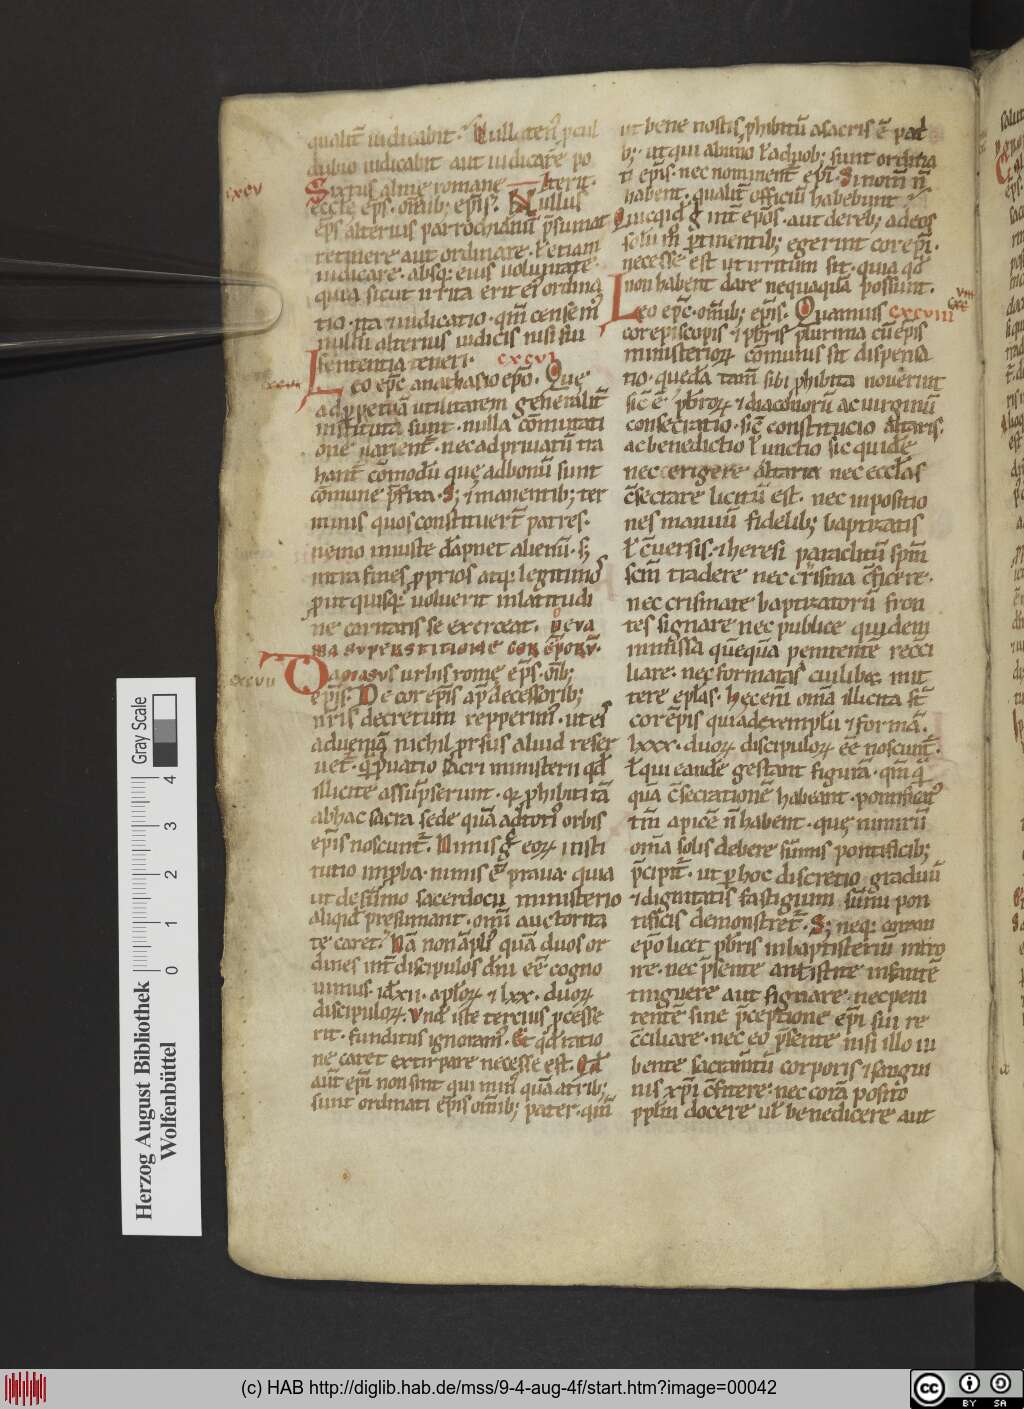 qualit̄ iudicabit. Nullaten᷒ ꝓcul
dubio iudicabit aut iudicare po
cxcv
Sixtus alme romane terit.
eccle ep̄s. om̄ib; ep̄is. Nullus
ep̄s alterius parrochianū p̄sumat
retinere aut ordinare. ł etiam
iudicare. absq; eius uoluntate.
quia sicut irrita erit ei᷒ ordina
tio. ita ⁊ iudicatio. qm̄ censem᷒
nullū alterius iudicis nisi sui
sententia teneri. cxcvi
Leo ep̄c anathasio ep̄o. Que
ad ꝑpetuā utilitatem generalit̄
instituta sunt. nulla cōmutati
one uarient̄. nec ad priuatū tra
hant̄ cōmodū que ad bonū sunt
comune p̄fixa. S; ⁊ manentib; ter
minis quos constituert̄ patres.
nemo iniuste usurpet alienū. s;
intra fines ꝓprios atq; legitimos
ꝓut quisq; uoluerit in latitudi
ne caritatis se exerceat. De va
na superstitione cor ep̄orū.
cxcvii
Damasus urbis rome ep̄s. om̄ib;
ep̄is. De corep̄is ap̄ decessorib;
nr̄is decretum repperim᷒. ut ei᷒
aduenia nichil ꝓrsus aliud refer
uet̄. q̄ priuatio sacri ministerii qd̄
illicite assūpserunt. qꝛ ꝓhibiti tā
ab hac sacra sede quā a ꝯtoti᷒ orbis
ep̄is noscunt̄. Nimis g̊ eoꝝ insti
tutio improba. nimis ē praua. quia
ut de sūmo sacerdocii ministerio
aliqid presumant. om̄i auctorita
te caret. Nā non āpli᷒ quā duos or
dines int̄ discipulos dn̄i eē cogno
uimus. id xii. apl̄oꝝ ⁊ lxx. duoꝝ
discipuloꝝ. Vnd̄ iste tercius ꝓcesse
rit. funditus ignoram᷒. Et qd̄ ratio
ne caret extirpare necesse est. Qd̄
aūt ep̄i non sint qui min᷒ quā a trib;
sunt ordinati ep̄is om̄ib; pater. qm̄
ut bene nostis ꝓhibitū a sacris ē pat
b;. ut qui ab uno ł a duob; sunt ordina
ti ep̄is. nec nominent̄ ep̄i. Si nom̄ n̄
habent. qualit̄ officiū habebunt
Quicqid g̊ int̄ ep̄os. aut de reb; ad eos
solum ꝑtinentib; egerint corep̄i.
necesse est ut irritum sit. quia qd̄
non habent dare nequaquā possunt.
Leo ep̄c. om̄ib; ep̄is. Quamuis cxcviii
corepiscopis ⁊ pbr̄is plurima cū ep̄is
ministerioꝝ comunis sit dispensa
tio. quedā tam̄ sibi ꝓhibita nouerint
sic̄ ē pbr̄oꝝ ⁊ diaconorū ac uirginū
consecratio. sic̄ constitucio altaris.
ac benedictio ł unctio. sic quidē
nec erigere altaria nec ecclas
ꝯsecrare licitū est. nec inpositio
nes manuū fidelib; baptizatis
ł ꝯuersis. ⁊ heresi paraclitū spm̄
sc̄m tradere nec crisma ꝯficere.
nec crismate baptizatorū fron
tes signare nec publice quidem
in missa quēquā penitentē recōci
liare. nec formatas cuilibet mit
tere eplas. Hec eni om̄a illicita st̄
corep̄is qui ad exemplū ⁊ formā.
lxxx. duoꝝ discipuloꝝ eē noscunt̄.
ł qui eandē gestant figurā. qm̄ q̄
quā ꝯsecrationē habeant. pontificat᷒
tm̄ apicē n̄ habent. que nimirū
om̄a solis debere sūmis pontificib;
p̄cipit̄. ut ꝑ hoc discretio graduū
⁊ dignitatis fastigium sūmi pon
tificis demonstret̄. S; neq; coram
ep̄o licet pbr̄is in baptisteriū intro
ire. nec p̄sente antistite infantē
tinguere aut signare. nec peni
tentē sine p̄ceptione ep̄i sui re
ꝯciliare. nec eo p̄sente nisi illo iu
bente sacramtū corporis ⁊ sangui
nis xp̄i ꝯficere. nec corā posito
ppl̄m docere uł benedicere aut
Gray Scale
Herzog August Bibliothek
Wolfenbüttel
0 1 2 3 4
(c) HAB http://diglib.hab.de/mss/9-4-aug-4f/start.htm?image=00042
cc BY SA